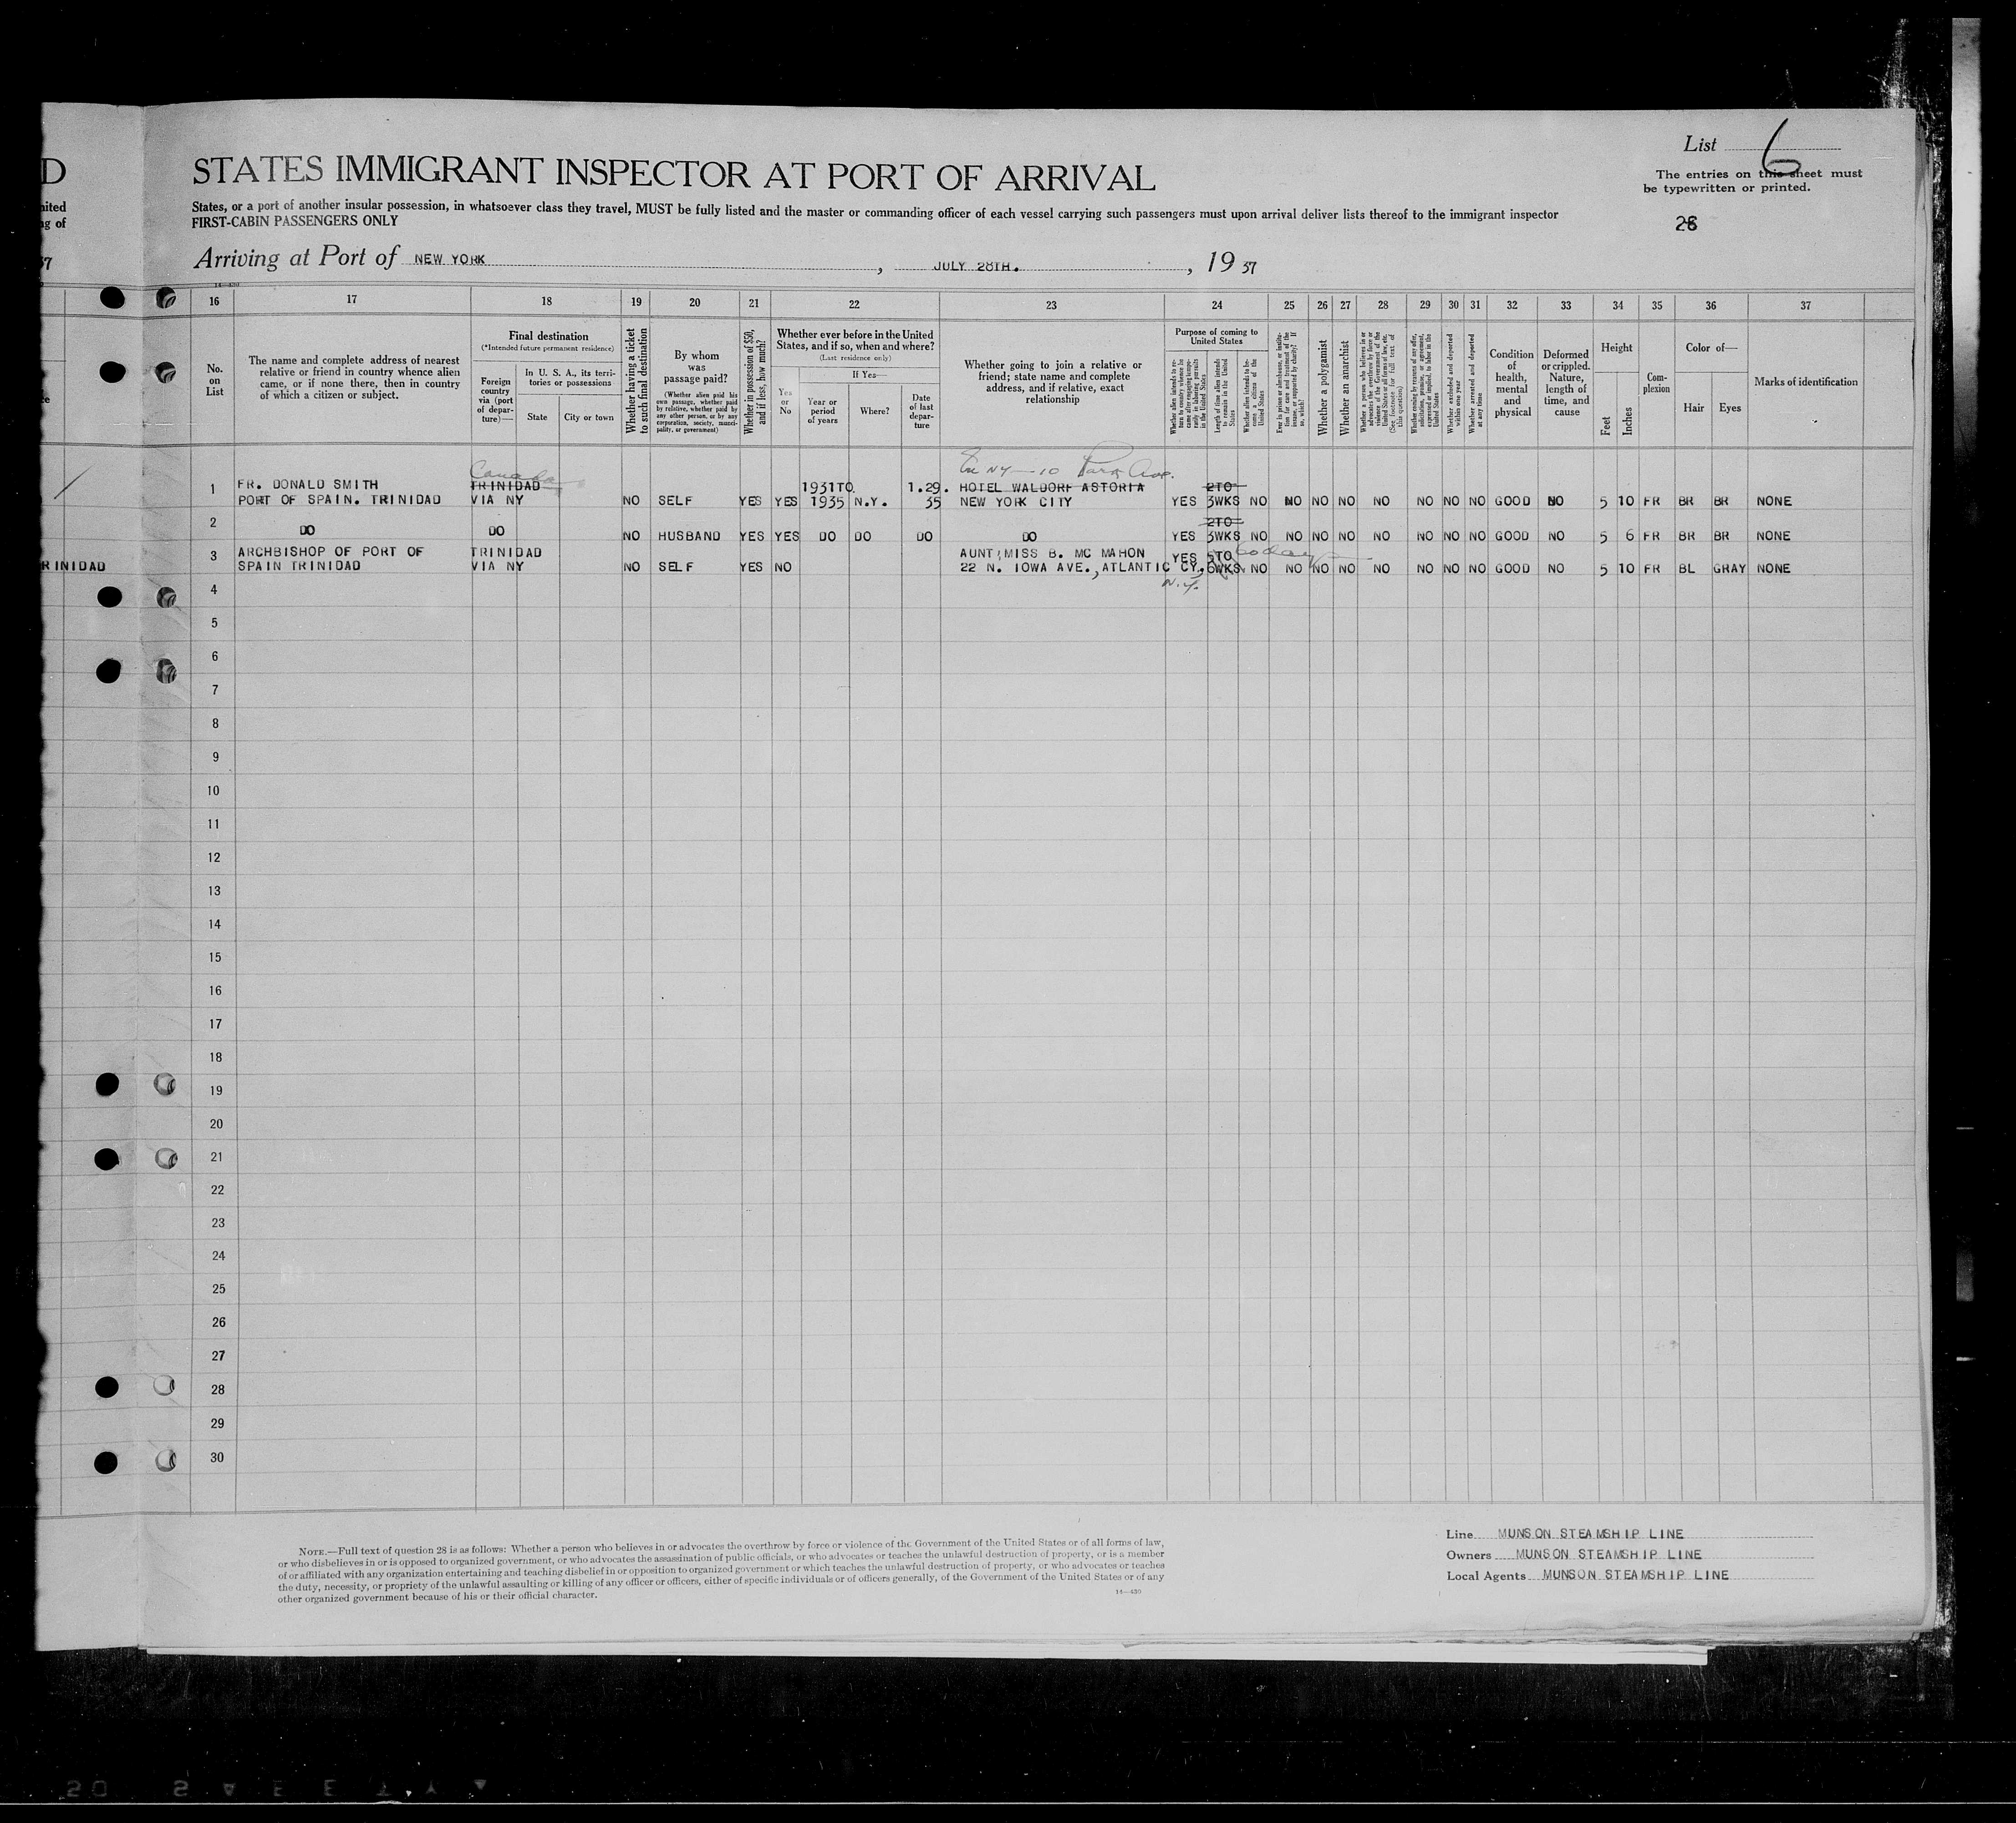 D
STATES IMMIGRANT INSPECTOR AT PORT OF ARRIVAL
List 6
The entries on this sheet must
be typewritten or printed.
States, or a port of another insular possession, in whatsoever class they travel, MUST be fully listed and the master or commanding officer of each vessel carrying such passengers must upon arrival deliver lists thereof to the immigrant inspector
FIRST-CABIN PASSENGERS ONLY
Arriving at Port of NEW YORK, JULY 28TH., 1937
16 17 18 19 20 21 22 23 24 25 26 27 28 29 30 31 32 33 34 35 36 37
No. on List
The name and complete address of nearest
relative or friend in country whence alien
came, or if none there, then in country
of which a citizen or subject.
Final destination
(*Intended future permanent residence)
Foreign country via (port of departure)—
In U. S. A., its territories or possessions
State
City or town
Whether having a ticket to such final destination
By whom was passage paid?
(Whether alien paid his own passage, whether paid by relative, whether paid by any other person, or by any corporation, society, municipality, or government)
Whether in possession of $50, and if less, how much?
Whether ever before in the United States, and if so, when and where?
(Last residence only)
Yes or No
If Yes—
Year or period of years
Where?
Date of last departure
Whether going to join a relative or
friend; state name and complete
address, and if relative, exact
relationship
Purpose of coming to United States
Length of time alien intends to remain in the United States
Whether a polygamist
Whether an anarchist
Whether excluded and deported within one year
Whether arrested and deported at any time
Condition of health, mental and physical
Deformed or crippled. Nature, length of time, and cause
Height
Feet
Inches
Complexion
Color of—
Hair
Eyes
Marks of identification
Canada
NY — 10 Park Ave.
1 FR. DONALD SMITH TRINIDAD 1931TO 1.29. HOTEL WALDORF ASTORIA 2TO
PORT OF SPAIN. TRINIDAD VIA NY NO SELF YES YES 1935 N.Y. 35 NEW YORK CITY YES 3WKS NO NO NO NO NO NO NO NO GOOD NO 5 10 FR BR BR NONE
2 DO DO NO HUSBAND YES YES DO DO DO DO YES 2TO 3WKS NO NO NO NO NO NO NO NO GOOD NO 5 6 FR BR BR NONE
3 ARCHBISHOP OF PORT OF TRINIDAD AUNT, MISS B. MC MAHON YES 5TO 60 days
RINIDAD SPAIN TRINIDAD VIA NY NO SELF YES NO 22 N. IOWA AVE., ATLANTIC CY, 6WKS NO NO NO NO NO NO NO NO GOOD NO 5 10 FR BL GRAY NONE
4
5
6
7
8
9
10
11
12
13
14
15
16
17
18
19
20
21
22
23
24
25
26
27
28
29
30
NOTE.—Full text of question 28 is as follows: Whether a person who believes in or advocates the overthrow by force or violence of the Government of the United States or of all forms of law,
or who disbelieves in or is opposed to organized government, or who advocates the assassination of public officials, or who advocates or teaches the unlawful destruction of property, or is a member
of or affiliated with any organization entertaining and teaching disbelief in or opposition to organized government or which teaches the unlawful destruction of property, or who advocates or teaches
the duty, necessity, or propriety of the unlawful assaulting or killing of any officer or officers, either of specific individuals or of officers generally, of the Government of the United States or of any
other organized government because of his or their official character.
14—430
Line MUNSON STEAMSHIP LINE
Owners MUNSON STEAMSHIP LINE
Local Agents MUNSON STEAMSHIP LINE